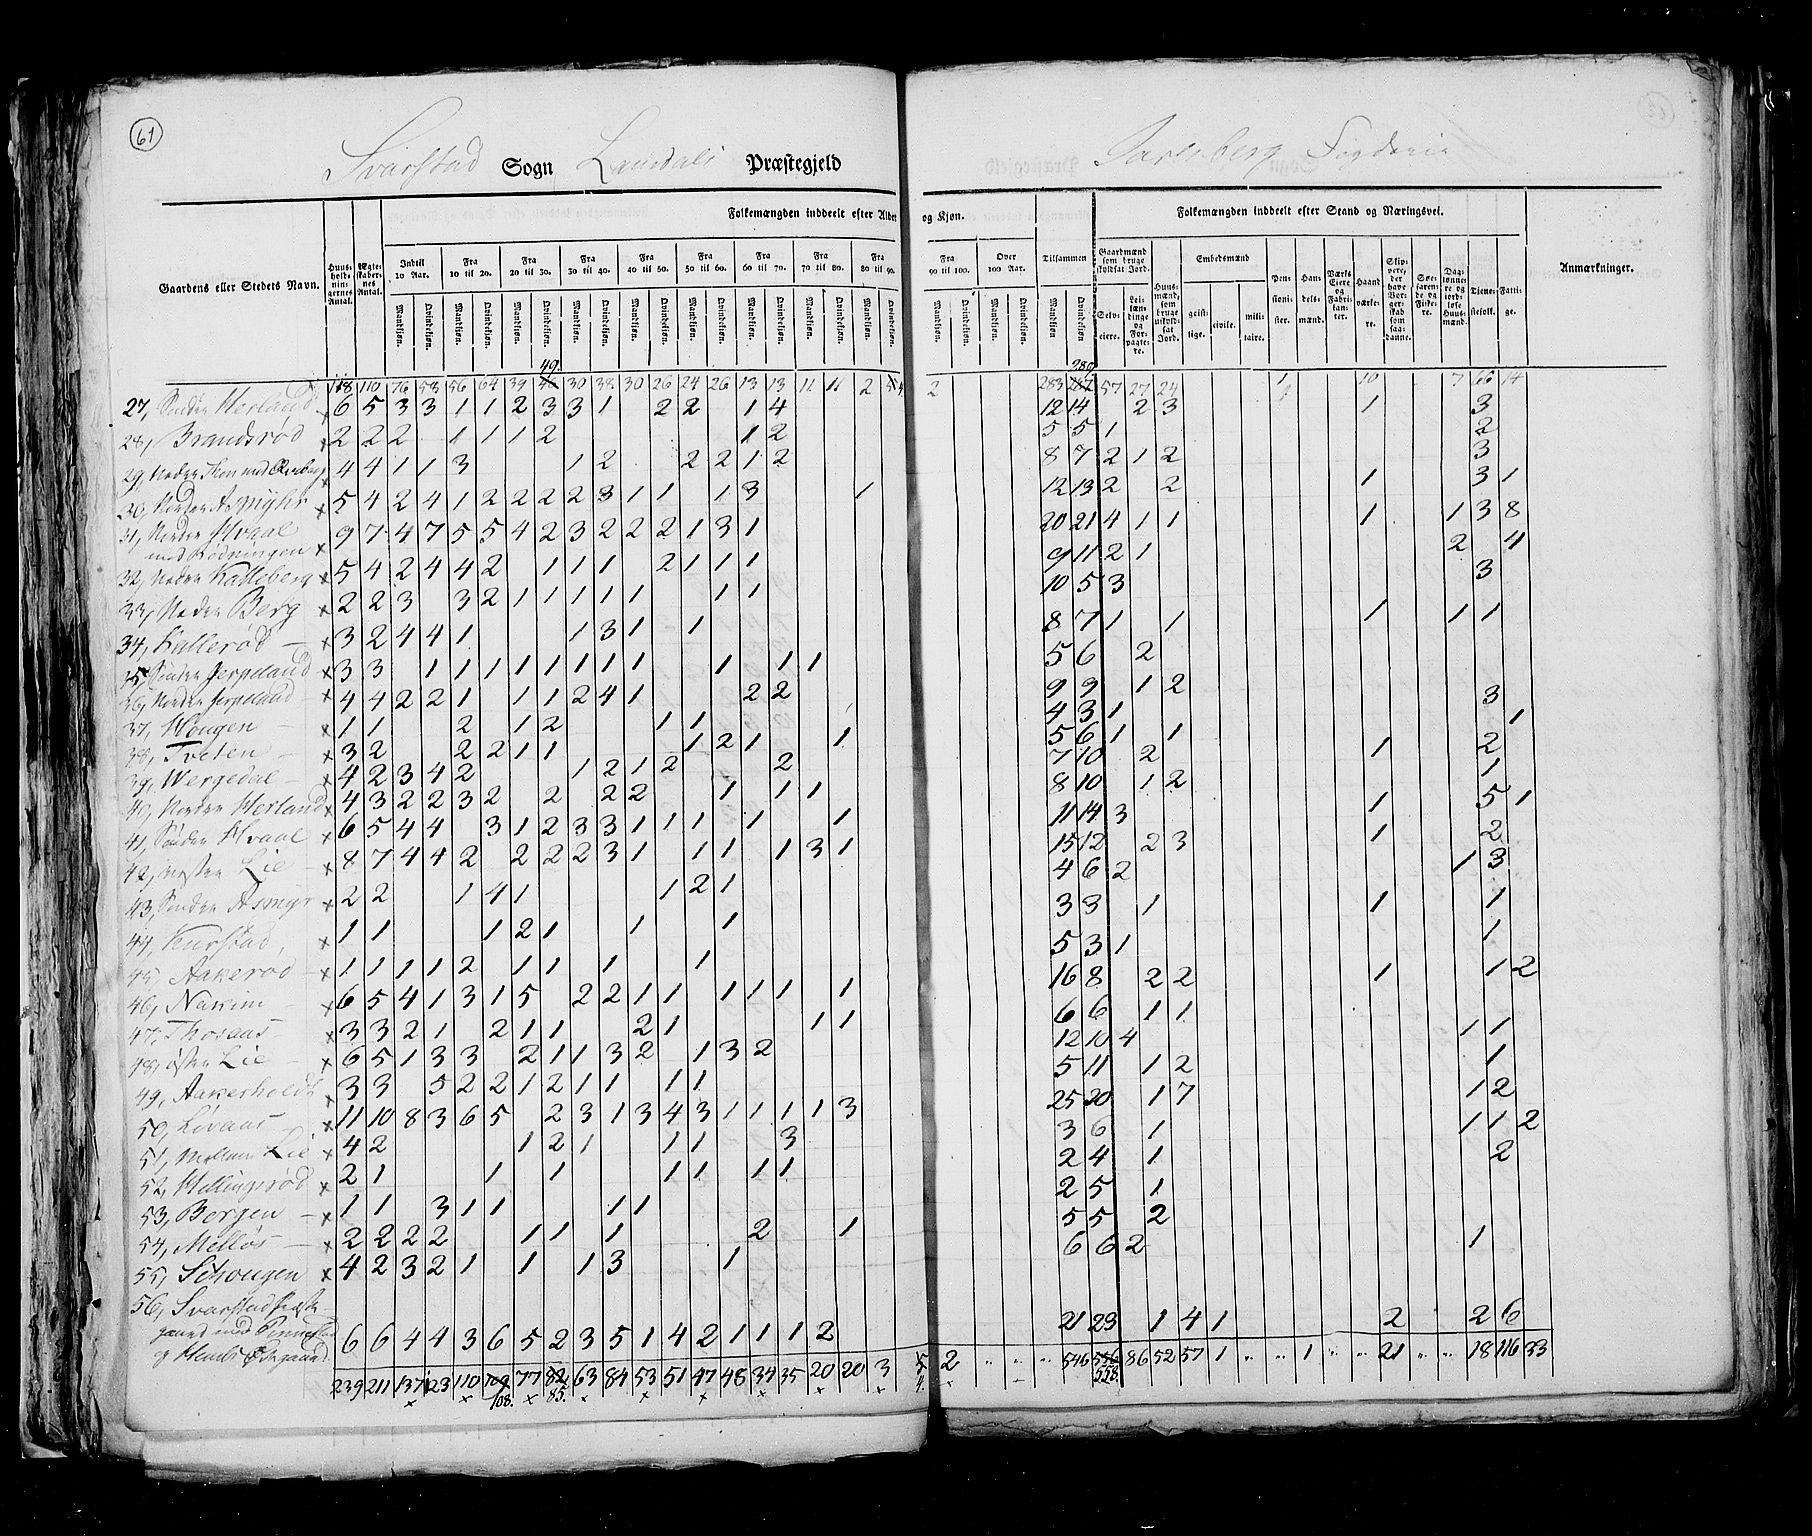 61
Svarstad Sogn Laurdals Præstegjeld
Jarlsberg Fogderie
Gaardens eller Stedets Navn.
Huus-holdningernes Antal.
Ægteskabernes Antal.
Folkemængden inddeelt efter Alder og Kjøn.
Indtil 10 Aar.
Fra 10 til 20.
Fra 20 til 30.
Fra 30 til 40.
Fra 40 til 50.
Fra 50 til 60.
Fra 60 til 70.
Fra 70 til 80.
Fra 80 til 90.
Fra 90 til 100.
Over 100 Aar.
Tilsammen
Mandkjøn. Qvindekjøn.
Folkemængden inddeelt efter Stand og Næringsvei.
Gaardmænd som bruge skyldsat Jord.
Selveiere.
Leilændinge og Forpagtere.
Huusmænd, som bruge uskyldsat Jord.
Embedsmænd
geistlige. civile. militaire.
Pensionister.
Handelsmænd.
Værks Eiere og Fabrikanter.
Haandværkere.
Skippere, der have Borgerskab som saadanne.
Søefarende og Fiskere.
Dagslønnere og jordløse Huusmænd.
Tjenestefolk.
Fattige.
Anmærkninger.
118 110 76 53 56 64 39 49. 30 38 30 26 24 26 13 13 11 11 2 2 283 289. 57 27 24 1 10 7 66 14
27, Søndre Herland 6 5 3 3 1 1 2 3 3 1 2 2 1 4 12 14 2 3 1 3
28, Brandsrød 2 2 2 1 1 1 2 1 2 5 5 1 2
29, Nedre 4 4 1 1 3 1 2 2 2 1 2 8 7 2 1 2 3
30, Nordre Asmyhr 5 4 2 4 1 2 2 2 2 3 1 1 1 3 1 12 13 2 2 1 3 1
31, Nordre Hvaal med Rødningen 9 7 4 7 5 5 4 2 3 2 2 2 1 3 1 20 21 4 1 1 1 1 3 8
32, Nedre Kalleberg 5 4 2 4 4 2 1 1 1 2 1 1 1 9 11 2 1 2 4
33, Nedre Berg 2 2 3 3 2 1 1 1 1 1 1 1 10 5 3 3
34, Kallerød 3 2 4 4 1 1 3 1 1 8 7 1 1 1 1 1
35, Søndre Jerpeland 3 3 1 1 1 1 1 1 1 1 1 1 1 5 6 2
36, Nordre Jerpeland 4 4 2 2 1 1 1 2 4 1 2 2 9 9 1 2
37, Hougen 1 1 2 1 2 1 1 4 3 1 3
38, Tveten 3 2 2 2 1 1 1 2 1 1 5 6 1 1 1
39, Wergedal 4 2 3 4 2 1 2 1 2 2 7 10 2 1 2
40, Nordre Herland 4 3 2 2 3 2 2 2 2 1 1 1 8 10 1 2 1
41, Søndre Hvaal 6 5 4 4 3 1 2 3 3 1 1 1 1 1 11 14 3 1 5 1
42, Vestre Lie 8 7 4 4 2 2 2 2 3 1 1 1 1 3 1 15 12 2 3 1 2
43, Søndre Asmyr 2 2 1 4 1 1 2 1 4 6 2 1 3
44, Kurstad 1 1 1 2 1 1 1 3 3 1 1 1
45, Aakerød 1 1 1 1 2 1 1 1 1 5 3 1 1
46, Nakim 6 5 4 1 3 1 5 2 2 1 1 1 1 1 1 16 8 2 2 1 1 2
47, Thoraas 3 3 2 1 2 1 1 2 1 1 1 6 6 1 1
48, østre Lie 6 5 1 3 3 2 1 1 3 2 1 3 2 12 10 4 1 1
49, Aakerholdt 3 3 5 2 2 1 2 1 1 1 1 5 11 1 2 1
50, Livaas 11 10 8 3 6 5 2 3 1 3 4 3 1 1 1 1 3 25 20 1 7 1 2
51, Mellem Lie 4 2 1 2 1 1 1 3 3 6 1 1 1 2
52, Hellingsrød 2 1 1 1 1 1 1 1 2 4 1 2
53, Bergen 1 1 3 1 1 1 1 2 5 1
54, Melløs 2 2 2 2 1 1 1 2 1 5 5 2
55, Schougen 4 2 3 2 1 1 1 3 1 6 6 2 1
56, Svarstad Præstegaard med 6 6 4 4 3 6 5 2 3 5 1 4 2 1 1 1 2 21 23 1 4 1 2 2 6
239 211 137 123 110 109 77 82 63 84 53 51 47 48 34 35 20 20 3 5 2 " " " 546 556 86 52 57 1 " " 1 " " 21 " " 18 116 33
108. 85. 4. 558.